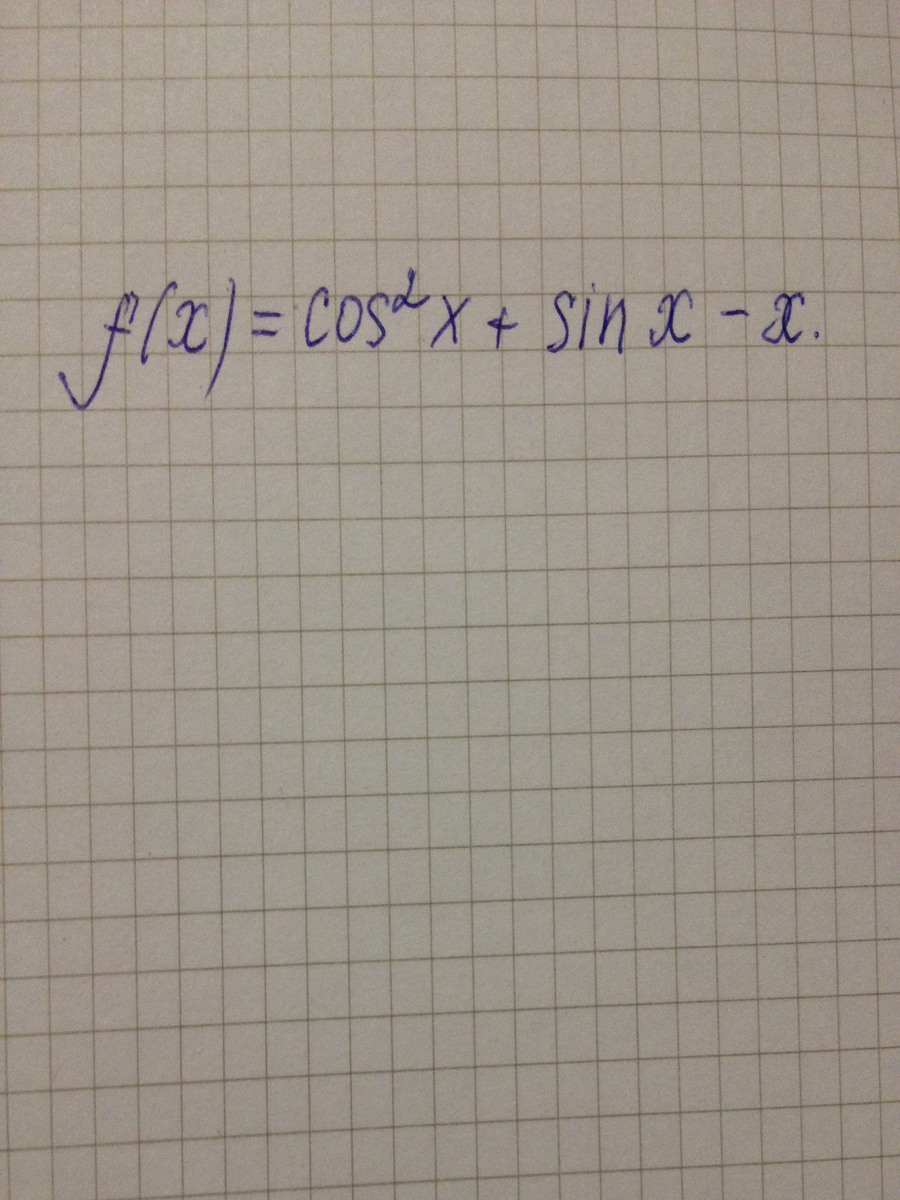 f(x) = cos²x + sin x - x.